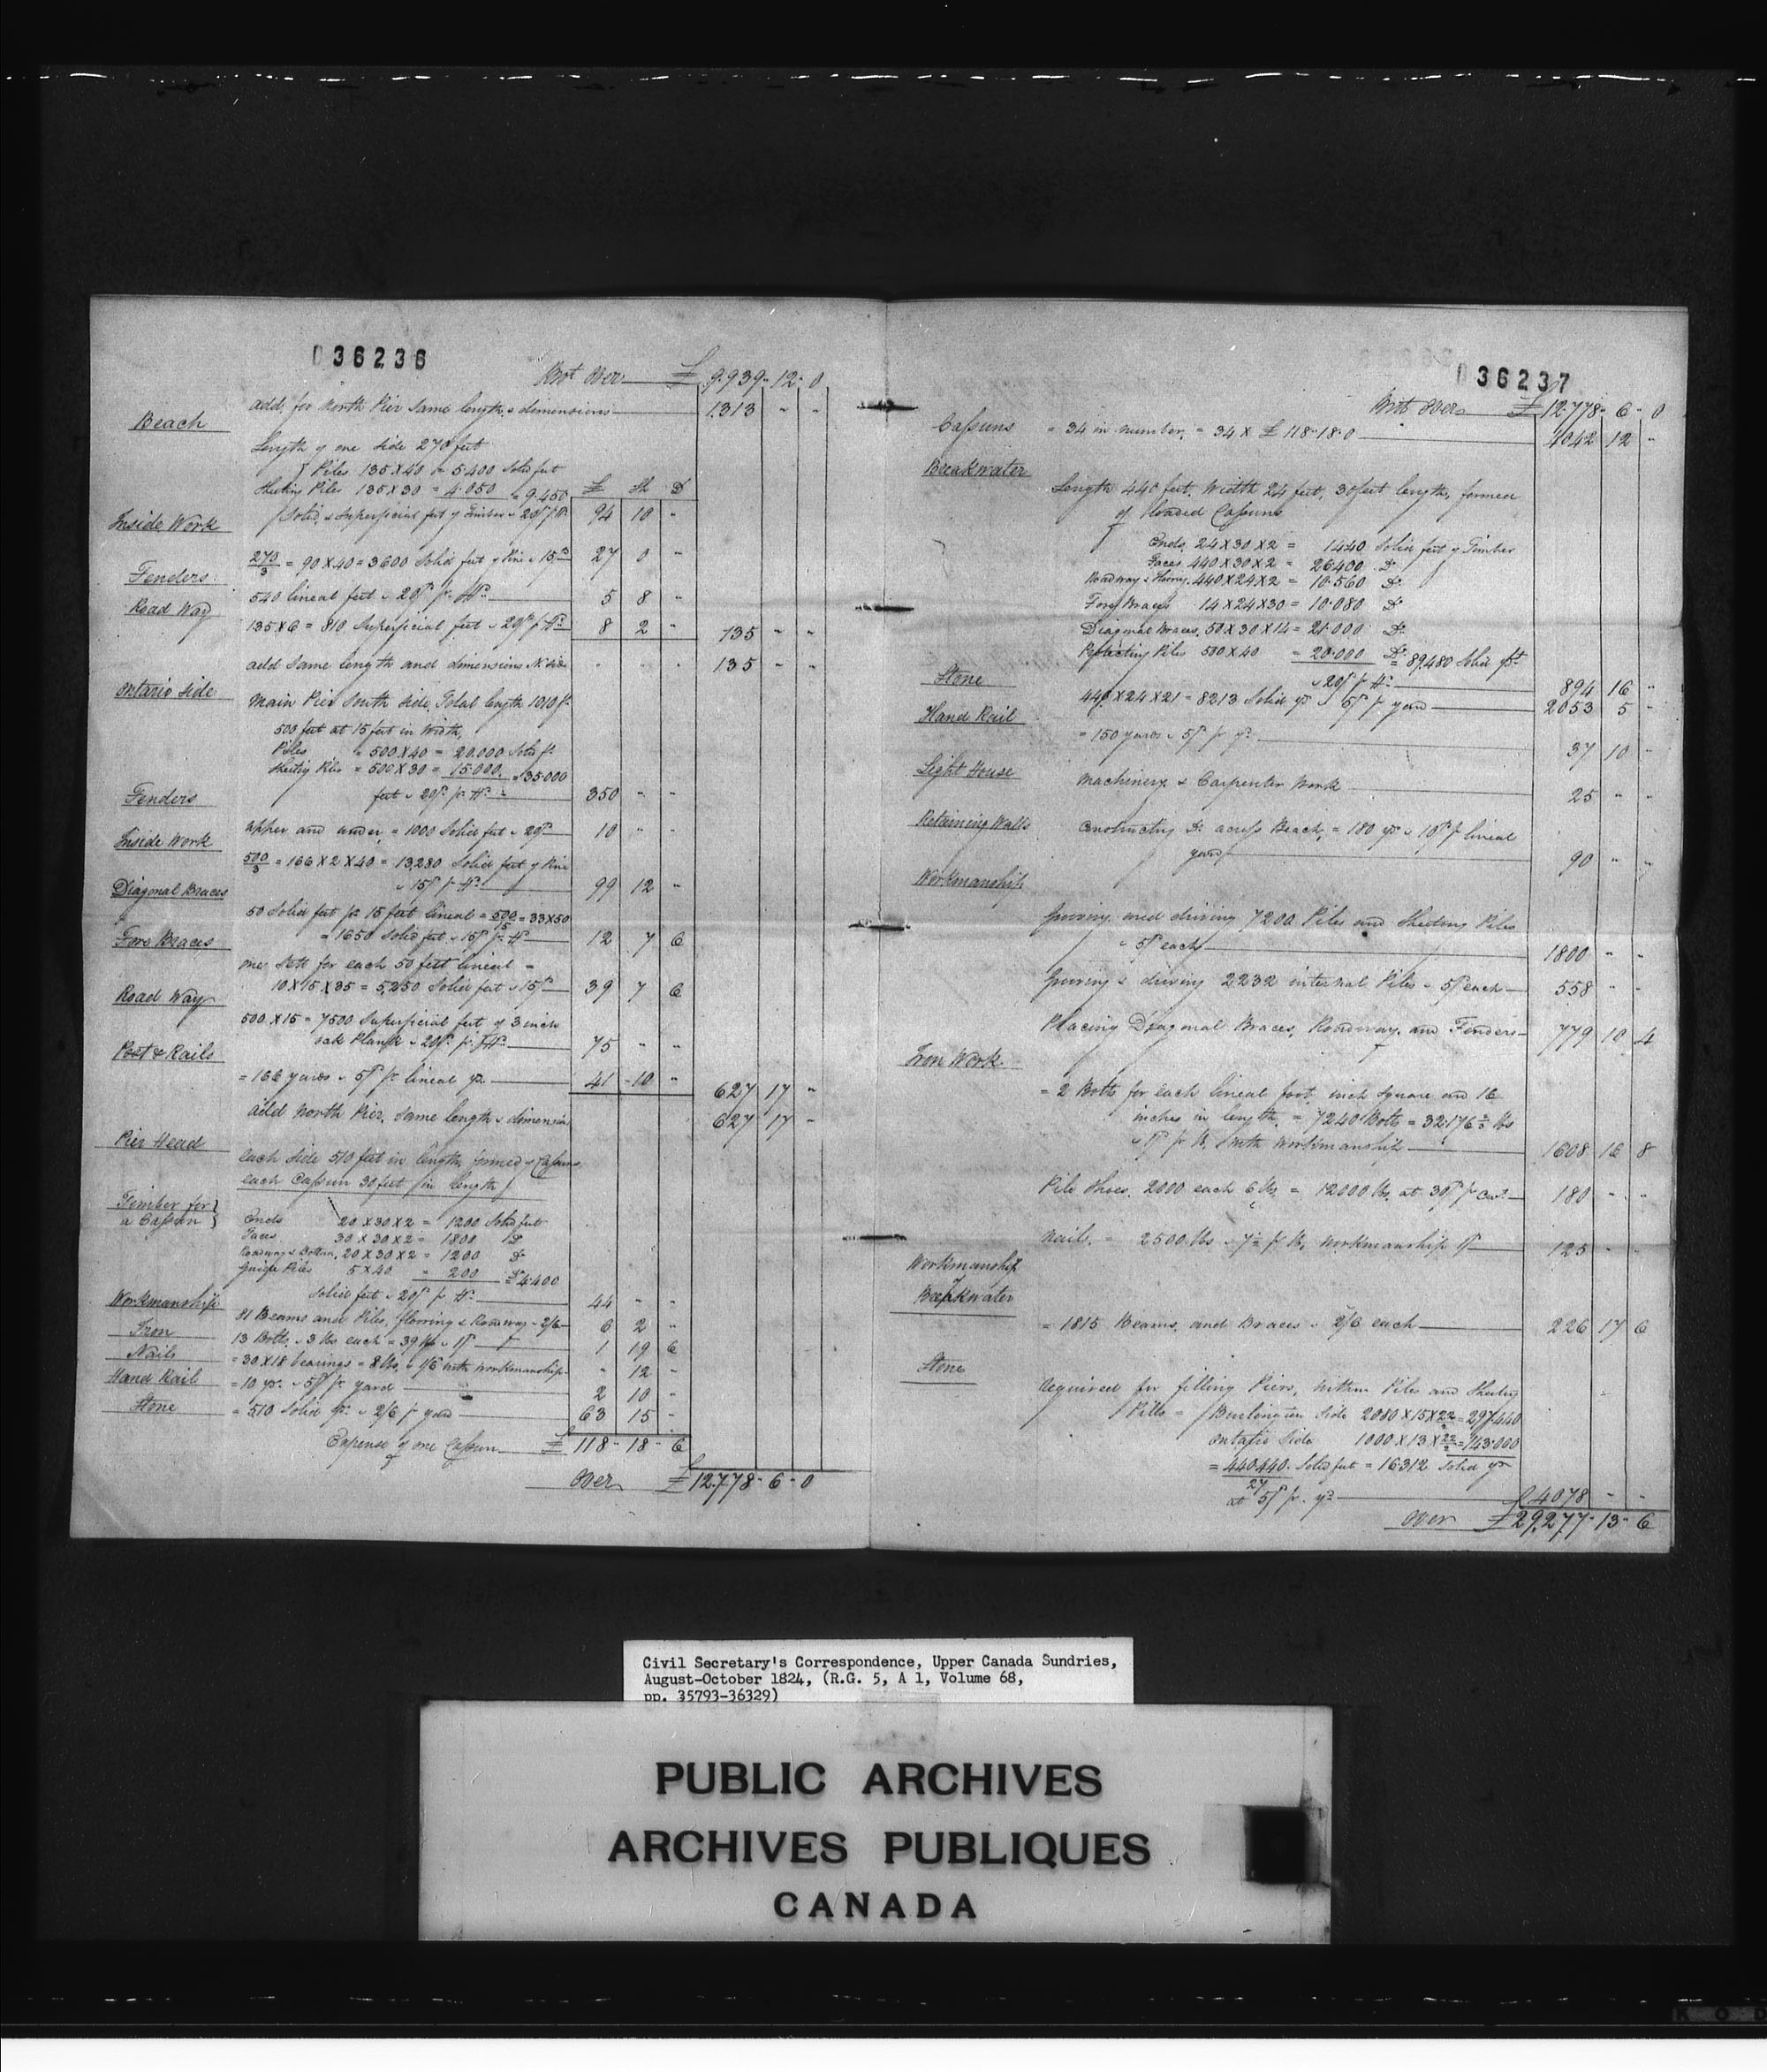 036236
Brot Over £ 9.939 - 12 - 0
add, for North Pier same length, & dimensions 1.313 " "
Beach
Length of one side 270 feet
Piles 135 X 40 = 5.400 Solid feet
Sheeting Piles 135 X 30 = 4.050 = 9.450 £ Sh D
Solid, & Superficial feet of Timber 94 10 "
Inside Work
270/3 = 90 X 40 = 3600 Solid feet of Pine 27 0 "
Fenders
540 lineal feet 5 8 "
Road Way
135 X 6 = 810 Superficial feet 8 2 " 135 " "
add same length and dimensions N. side " " " 135 " "
Ontario Side
Main Pier South side, Total length 1010 ft
500 feet at 15 feet in Width,
Piles = 500 X 40 = 20.000 Solid ft
Sheeting Piles = 500 X 30 = 15.000 = 35.000
feet 350 " "
Fenders
upper and under, = 1000 Solid feet 10 " "
Inside Work
500/3 = 166 X 2 X 40 = 13,280 Solid feet of Pine
99 12 "
Diagonal Braces
50 Solid feet pr 15 feet lineal = 500/15 = 33 X 50
= 1650 Solid feet 12 7 6
Fore Braces
one sett for each 50 feet lineal =
10 X 15 X 35 = 5,250 Solid feet 39 7 6
Road Way
500 X 15 = 7500 Superficial feet of 3 inch
oak Plank 75 " "
Post & Rails
= 166 yards pr lineal yd. 41 - 10 " 627 17 "
add North Pier, same length & dimensions 627 17 "
Pier Head
each side 510 feet in length, formed of Cassuns
each Cassun 30 feet in length
Timber for
a Cassun
Ends 20 X 30 X 2 = 1200 Solid feet
Faces 30 X 30 X 2 = 1800 Do
Roadway & Bottom, 20 X 30 X 2 = 1200 Do
Guide Piles 5 X 40 = 200 Do = 4.400
Solid feet 44 " "
Workmanship
81 Beams and Piles, flooring & Roadway 2/6 6 2 "
Iron
13 Bolts 3 lbs each = 39 lbs 1 19 6
Nails
= 30 X 18 bearings = 8 lbs, 1/6 with workmanship " 12 "
Hand Rail
= 10 yds. pr yard 2 10 "
Stone
= 510 Solid yds 2/6 pr yard 63 15 "
Expense of one Cassun £ 118 - 18 - 6
Over £ 12.778 - 6 - 0
036237
Brot Over £ 12.778 - 6 - 0
Cassuns = 34 in number, = 34 X £ 118 - 18 - 0 4042 12 "
Breakwater
Length 440 feet, Width 24 feet, 30 feet length, formed
of loaded Cassuns
Ends, 24 X 30 X 2 = 1440 Solid feet of Timber
Faces 440 X 30 X 2 = 26400 Do
Roadway & 440 X 24 X 2 = 10.560 Do
Fore Braces 14 X 24 X 30 = 10.080 Do
Diagonal Braces, 50 X 30 X 14 = 21.000 Do
Piles 500 X 40 = 20.000 Do = 89.480 Solid ft
894 16 "
Stone
440 X 24 X 21 = 8213 Solid yds pr yard 2053 5 "
Hand Rail
= 150 yards pr yd. 37 10 "
Light House
Machinery & Carpenter Work 25 " "
Retaining Walls
Constructing Do across Beach, = 180 yds pr lineal
yard 90 " "
Workmanship
and driving 7200 Piles and Sheeting Piles
each 1800 " "
& driving 2232 internal Piles each 558 " "
Placing Diagonal Braces, Roadway, and Fenders 779 10 4
Iron Work
= 2 Bolts for each lineal foot, inch square and 16
inches in length, = 7240 Bolts = 32.176 lbs
with workmanship 1608 16 8
Pile Shoes, 2000 each 6 lbs, = 12000 lbs, at 30/ pr Cwt. 180 " "
Nails, = 2500 lbs pr lb, workmanship 125 " "
Workmanship
of
Breakwater
= 1815 Beams, and Braces 2/6 each 226 17 6
Stone
required for filling Piers, within Piles and Sheeting
Piles = Burlington Side 2080 X 15 X 22/2 = 297.440
Ontario Side 1000 X 13 X 22/2 = 143.000
= 440.440/27 Solid feet = 16312 Solid yds
at 5/ pr. yd. £ 4078 " "
Over £ 29,277 - 13 - 6
Civil Secretary's Correspondence, Upper Canada Sundries,
August-October 1824, (R.G. 5, A 1, Volume 68,
pp. 35793-36329)
PUBLIC ARCHIVES
ARCHIVES PUBLIQUES
CANADA